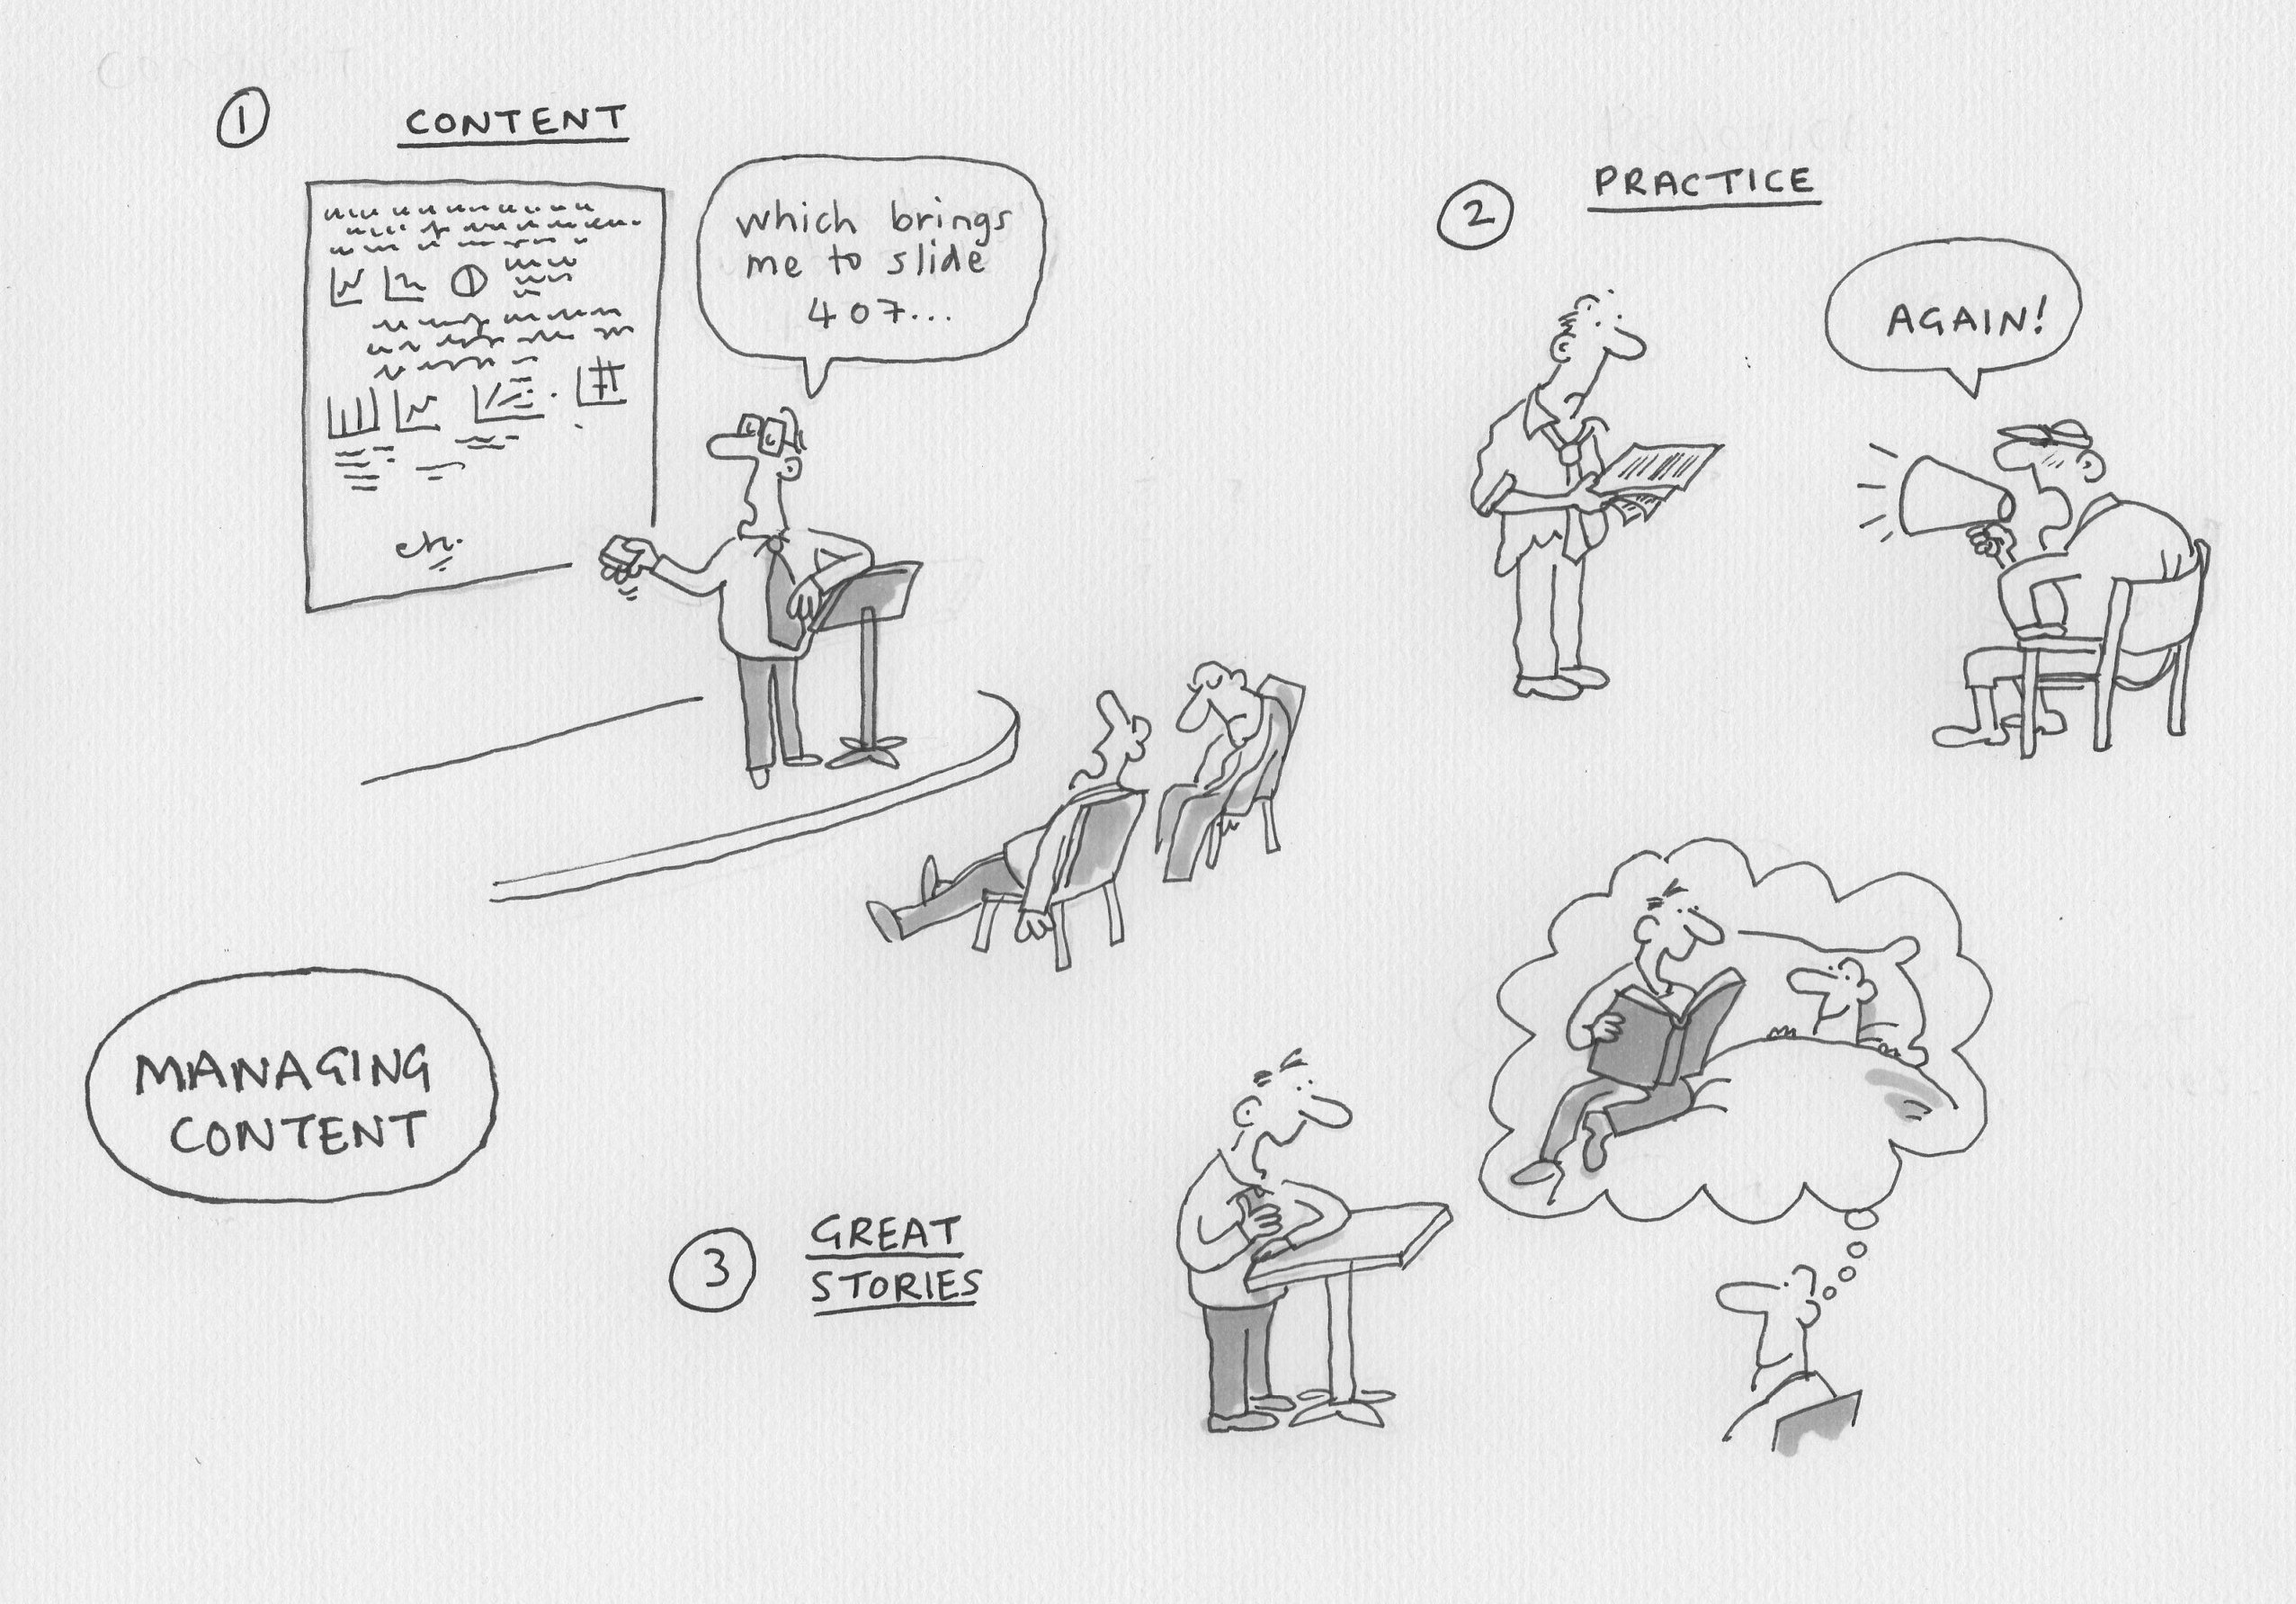 1
CONTENT
which brings
me to slide
407...
2
PRACTICE
AGAIN!
MANAGING
CONTENT
3
GREAT
STORIES